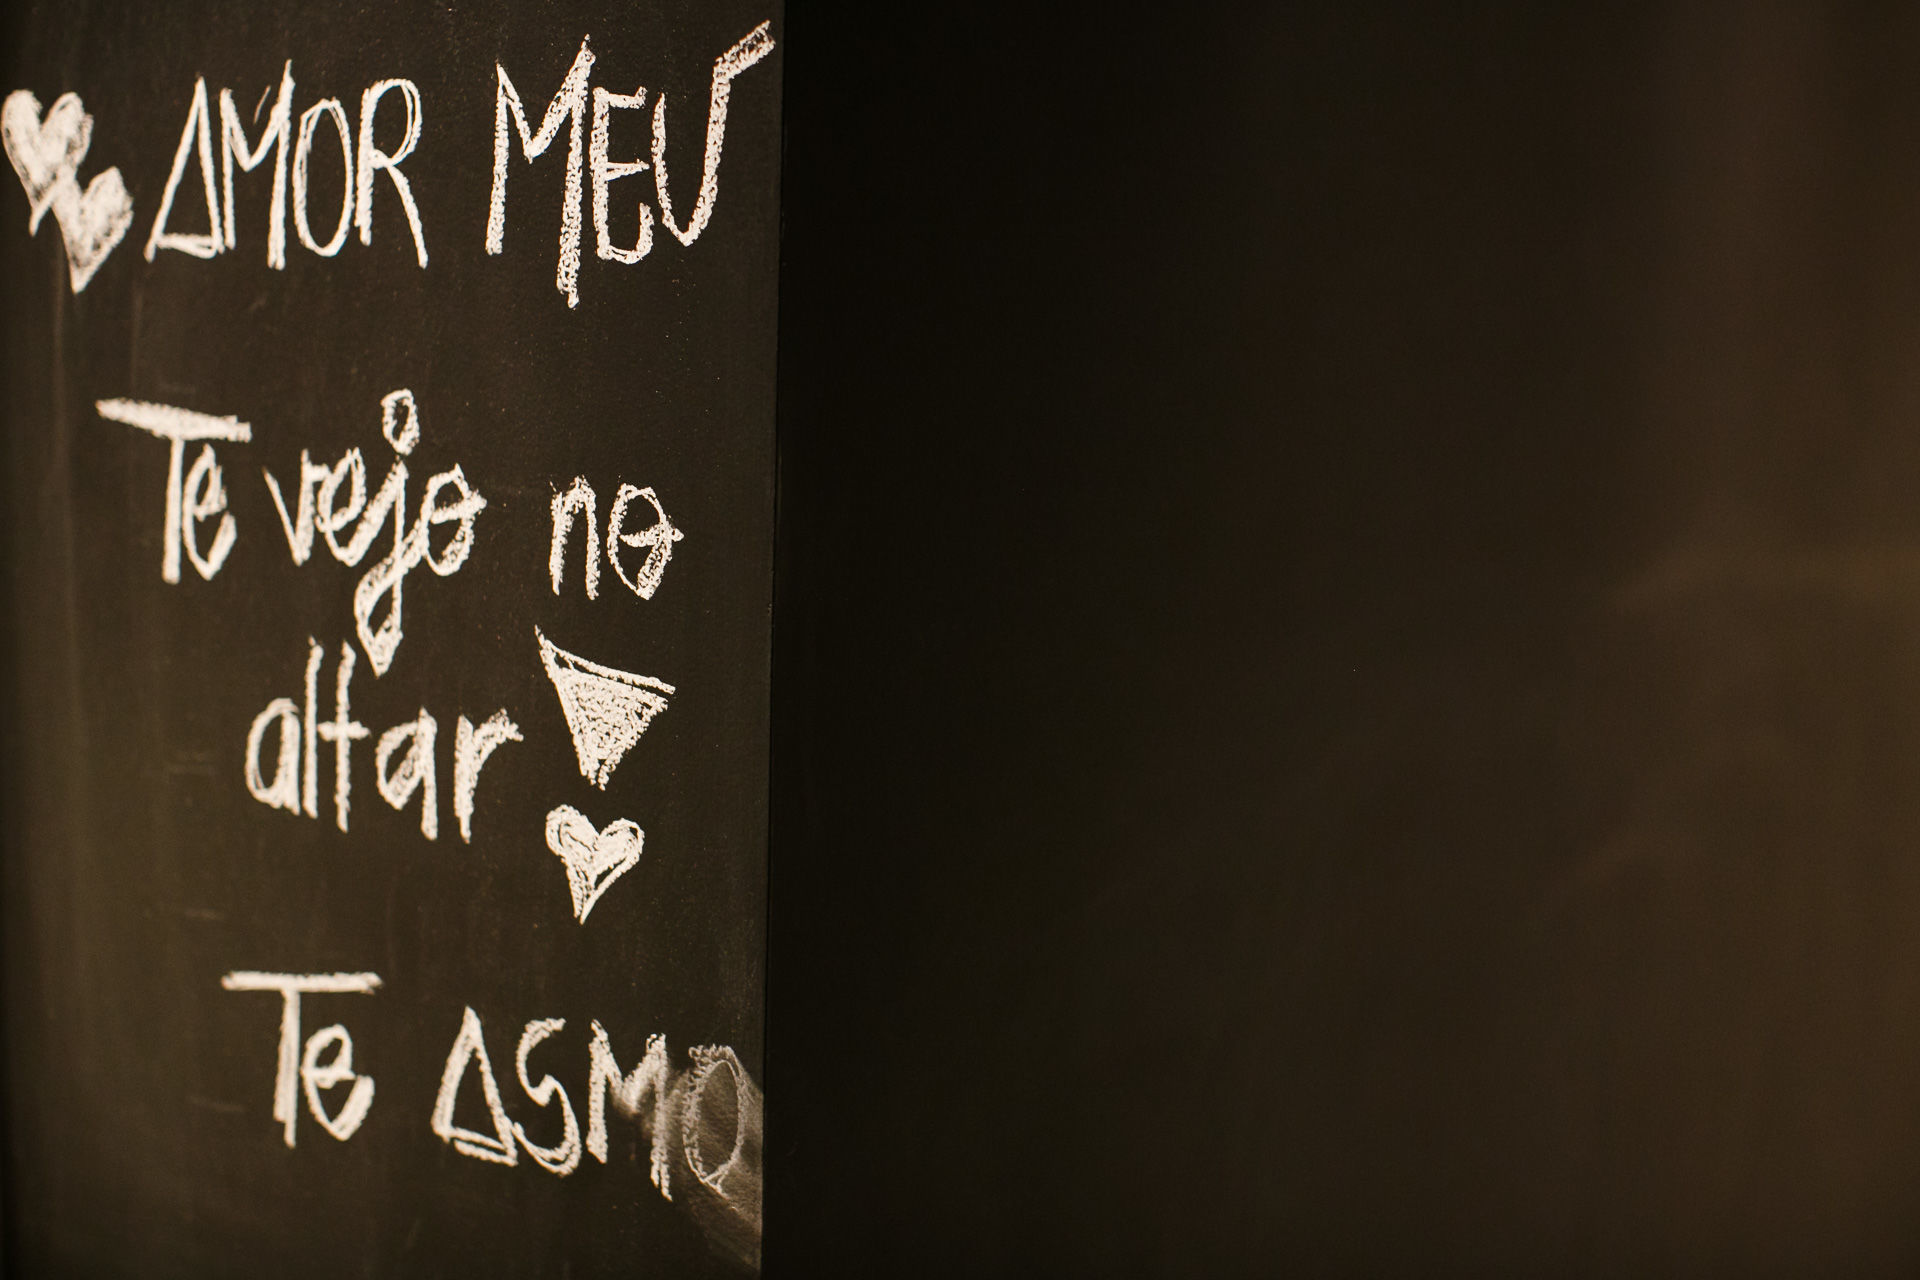 AMOR MEU
Te vejo no
altar
Te ASMO